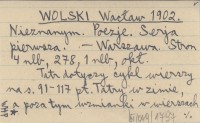 WOLSKI Wacław 1902.
Nieznanym. Poezje. Serja
pierwsza. — Warszawa. Stron
4 nlb, 278, 1 nlb, okt.
Tatr dotyczy cykl wierszy
na s. 91-117 pt. Tatry w zimie,
a poza tym wzmianki w wierszach